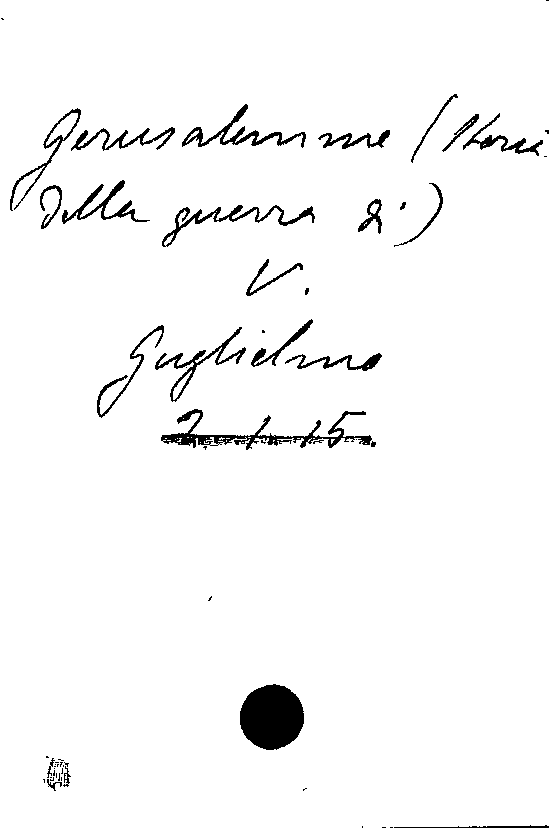 Gerusalemme (Storia
della guerra di)
V.
Guglielmo
2.1.15.